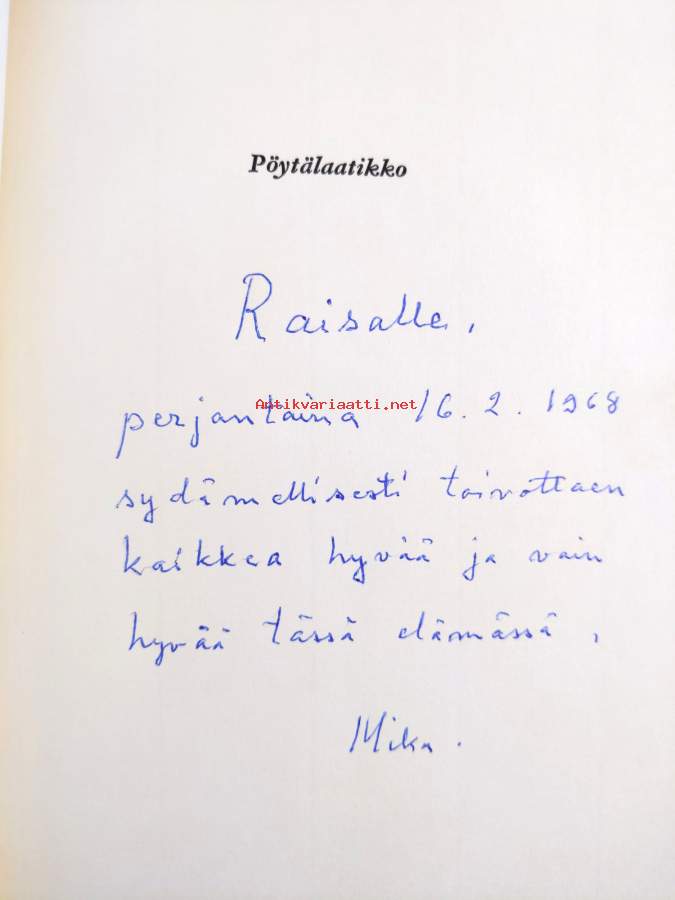 Pöytälaatikko
Raisalle,
perjantaina 16.2.1968
Antikvariaatti.net
sydämellisesti toivottaen
kaikkea hyvää ja vain
hyvää tässä elämässä,
Mika.